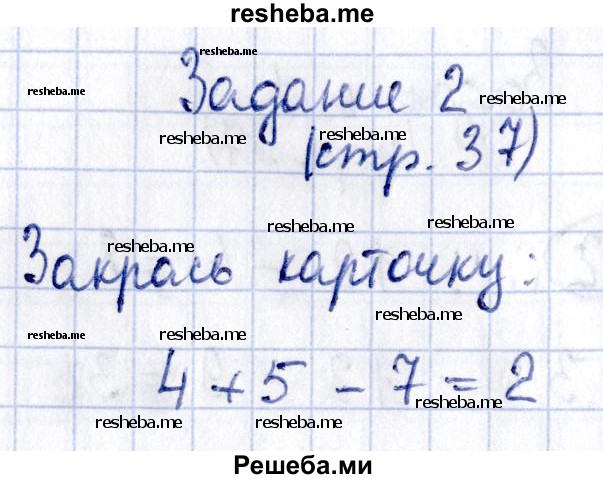 resheba.me
resheba.me
resheba.me
Задание 2
resheba.me
resheba.me
resheba.me
(стр. 37)
resheba.me
resheba.me
resheba.me
Закрась карточку:
resheba.me
resheba.me
resheba.me
4 + 5 - 7 = 2
resheba.me
resheba.me
resheba.me
Решеба.ми